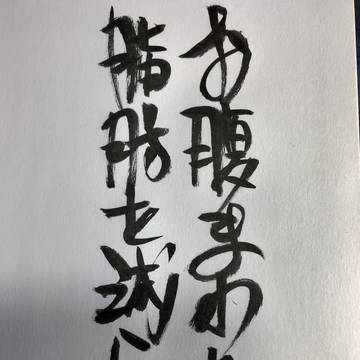 お腹まわり
脂肪を減に